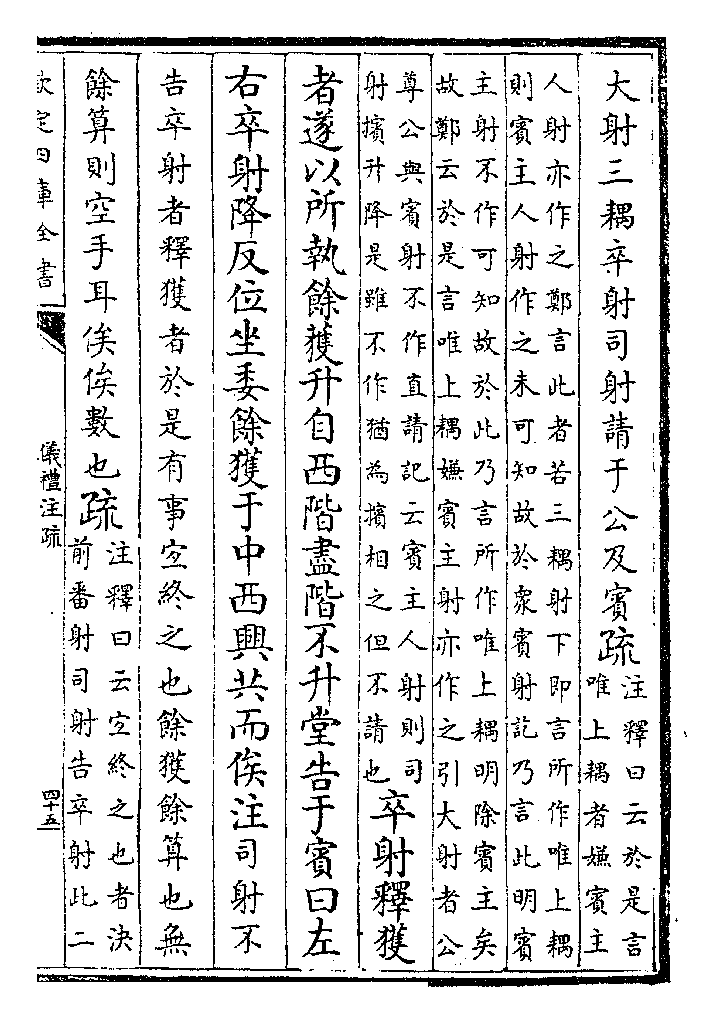 大射三耦卒射司射請于公及賓疏注釋曰云於是言
唯上耦者嫌賓主
人射亦作之鄭言此者若三耦射下即言所作唯上耦
則賓主人射作之未可知故於衆賓射訖乃言此明賓
主射不作可知故於此乃言所作唯上耦明除賓主矣
故鄭云於是言唯上耦嫌賓主射亦作之引大射者公
尊公與賓射不作直請記云賓主人射則司
射擯升降是雖不作猶為擯相之但不請也卒射釋獲
者遂以所執餘獲升自西階盡階不升堂告于賓曰左
右卒射降反位坐委餘獲于中西興共而俟注司射不
告卒射者釋獲者於是有事宜終之也餘獲餘算也無
餘算則空手耳俟俟數也疏注釋曰云宜終之也者決
前番射司射告卒射此二
欽定四庫全書
儀禮注疏
四十五